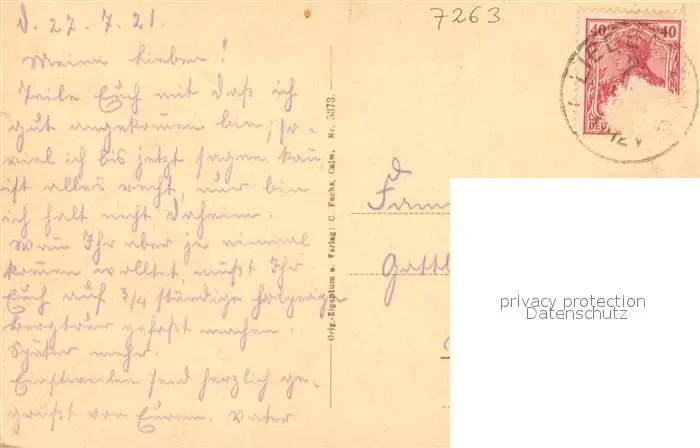 d. 27. 7. 21.
7263
Meine Lieben!
Teile Euch mit daß ich
gut angekommen bin; so-
viel ich bis jetzt sagen kann
ist alles recht, nur bin
ich halt nicht daheim.
Wenn Ihr aber je einmal
kommen wolltet, müßt Ihr
Euch auf 3/4 stündige holperige
Bergtour gefaßt machen.
Später mehr.
Einstweilen seid herzlich ge-
grüßt von Eurem Vater
Orig.-Eigentum u. Verlag: C. Fuchs, Calw. Nr. 5373.
40 40
privacy protection
Datenschutz